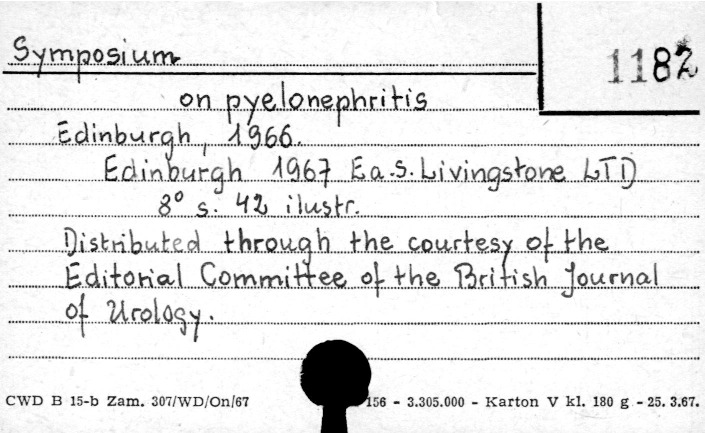 Symposium
1182
on pyelonephritis
Edinburgh, 1966.
Edinburgh 1967 Ea.S. Livingstone LTD
8° s. 42 ilustr.
Distributed through the courtesy of the
Editorial Committee of the British Journal
of Urology.
CWD B 15-b Zam. 307/WD/On/67 156 - 3.305.000 - Karton V kl. 180 g - 25. 3.67.